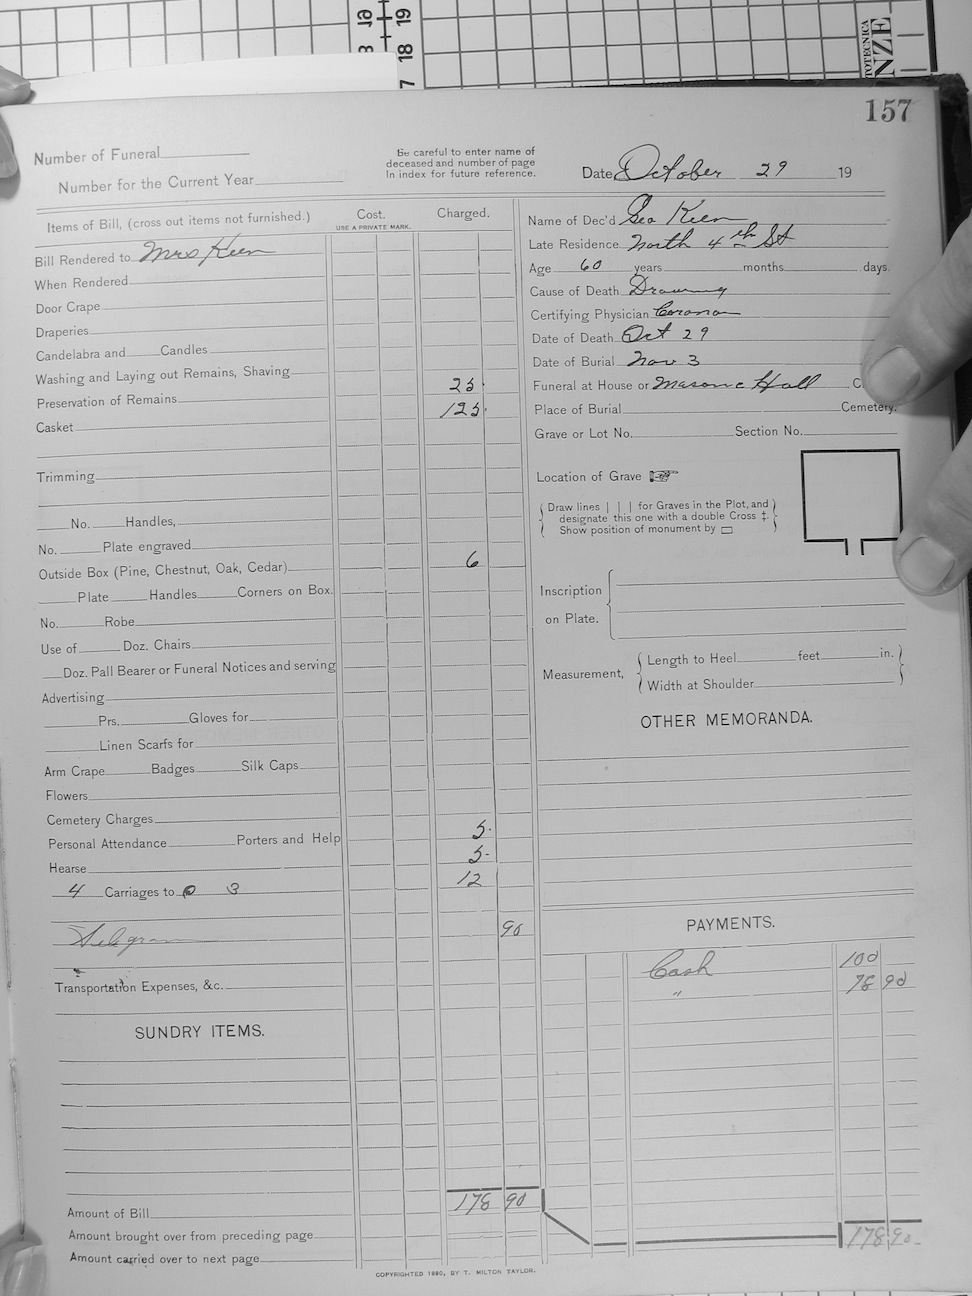 19
18
7
NZE
157
Number of Funeral
Be careful to enter name of
deceased and number of page
in index for future reference.
Number for the Current Year
Date October 29 19
Items of Bill, (cross out items not furnished.)
Cost.
USE A PRIVATE MARK.
Charged.
Bill Rendered to Mrs Keen
When Rendered
Door Crape
Draperies
Candelabra and Candles
Washing and Laying out Remains, Shaving
Preservation of Remains 25.
Casket 125.
Trimming
No. Handles,
No. Plate engraved
Outside Box (Pine, Chestnut, Oak, Cedar) 6
Plate Handles Corners on Box.
No. Robe
Use of Doz. Chairs
Doz. Pall Bearer or Funeral Notices and serving
Advertising
Prs. Gloves for
Linen Scarfs for
Arm Crape Badges Silk Caps
Flowers
Cemetery Charges
Personal Attendance Porters and Help 5.
Hearse 5.
4 Carriages to 3 12
Telegram 90
Transportation Expenses, &c.
SUNDRY ITEMS.
Amount of Bill 178 90
Amount brought over from preceding page
Amount carried over to next page
Name of Dec'd Geo Keen
Late Residence North 4th St
Age 60 years months days.
Cause of Death Drowning
Certifying Physician Coroner
Date of Death Oct 29
Date of Burial Nov 3
Funeral at House or Masonic Hall C
Place of Burial Cemetery.
Grave or Lot No. Section No.
Location of Grave
Draw lines | | | for Graves in the Plot, and
designate this one with a double Cross ‡.
Show position of monument by
Inscription
on Plate.
Measurement,
Length to Heel feet in.
Width at Shoulder
OTHER MEMORANDA.
PAYMENTS.
Cash 100
" 78 90
178 90
COPYRIGHTED 1890, BY T. MILTON TAYLOR.